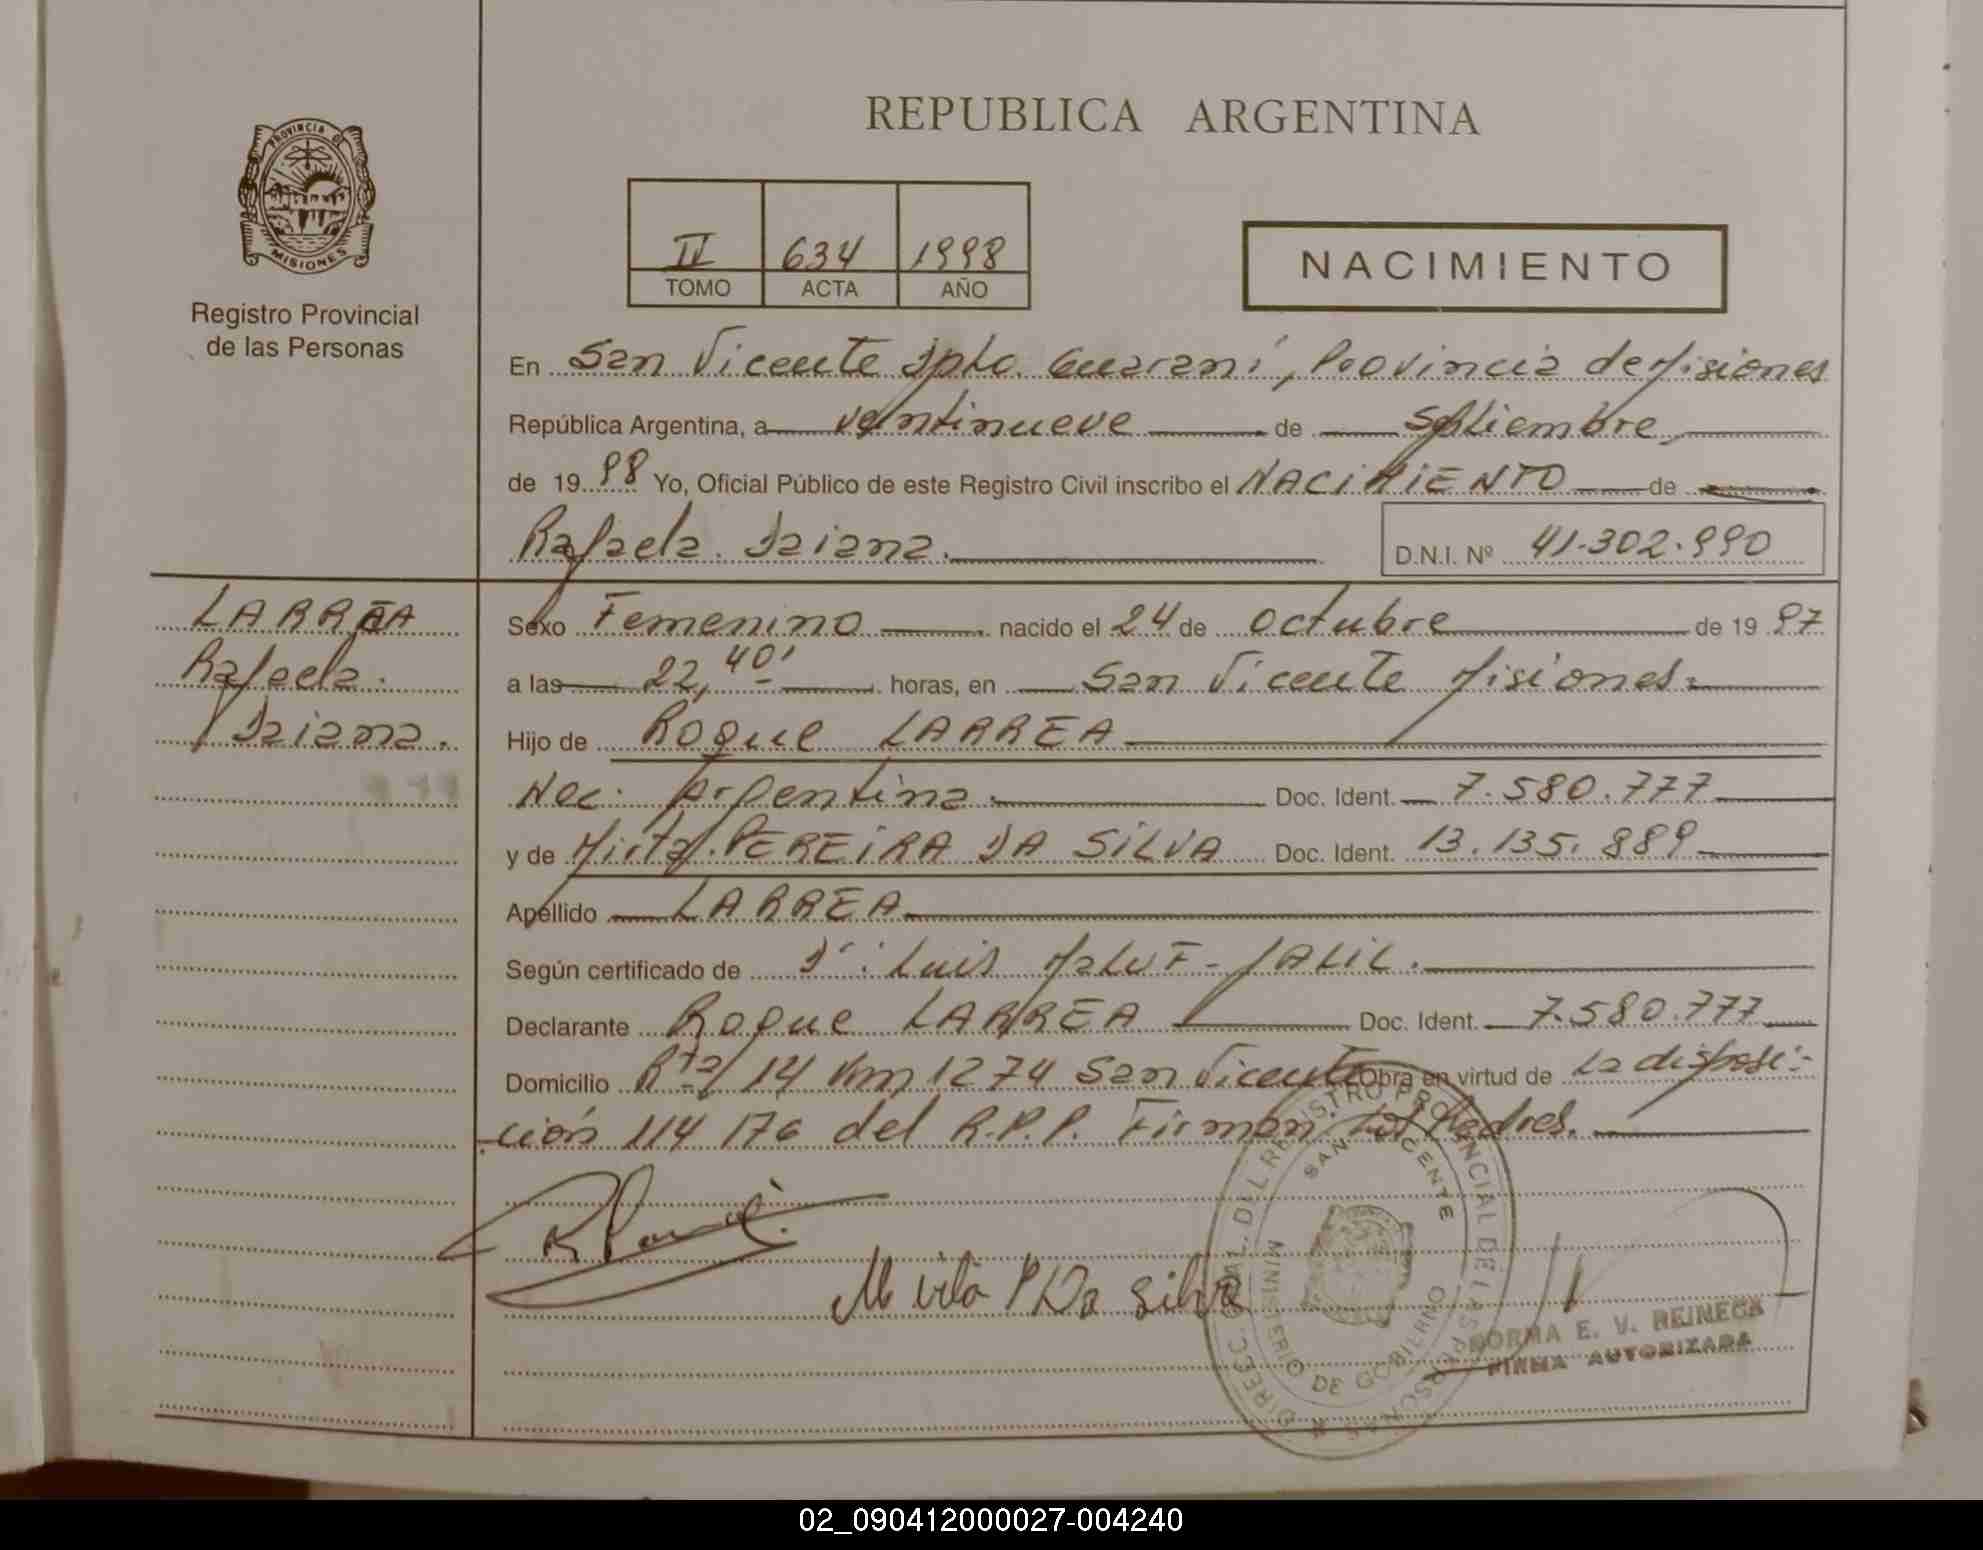 REPUBLICA ARGENTINA
PROVINCIA DE
MISIONES
Registro Provincial
de las Personas
II 634 1998
TOMO ACTA AÑO
NACIMIENTO
En San Vicente Dpto. Guaraní, Provincia de Misiones
República Argentina, a ventinueve de Septiembre
de 1998 Yo, Oficial Público de este Registro Civil inscribo el NACIMIENTO de
Rafaela Daiana. D.N.I. Nº 41.302.990
LARREA
Rafaela
Daiana.
Sexo Femenino nacido el 24 de octubre de 1997
a las 22,40' horas, en San Vicente Misiones.
Hijo de Roque LARREA
Nac. Argentina. Doc. Ident. 7.580.777
y de Mirta PEREIRA DA SILVA Doc. Ident. 13.135.889
Apellido LARREA
Según certificado de Dr. Luis Maluf - JALIL.
Declarante Roque LARREA Doc. Ident. 7.580.777
Domicilio Rta 14 Km 1274 San Vicente Obra en virtud de la disposi-
ción 114/76 del R.P.P. Firman los Padres.
Mirta P Da Silva
DIRECC. GRAL. DEL REGISTRO PROVINCIAL DE LAS PERSONAS
SAN VICENTE
MINISTERIO DE GOBIERNO
NORMA E. V. REINECK
FIRMA AUTORIZADA
02_090412000027-004240